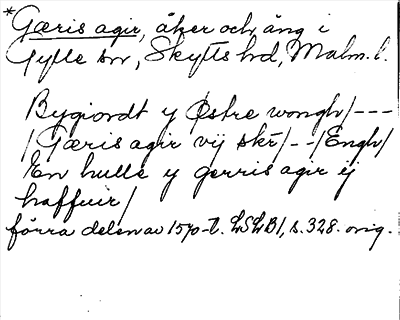 *Gæris agir, åker och äng i
Gylle sn, Skytts hd, Malm. l.
Bygiordt y Østre wongh/---
/Gæris agir vij skr/--/Engh/
En hulle y gerris agir ij
haffuir/
förra delen av 1570-t. LSLB1, s. 328. orig.